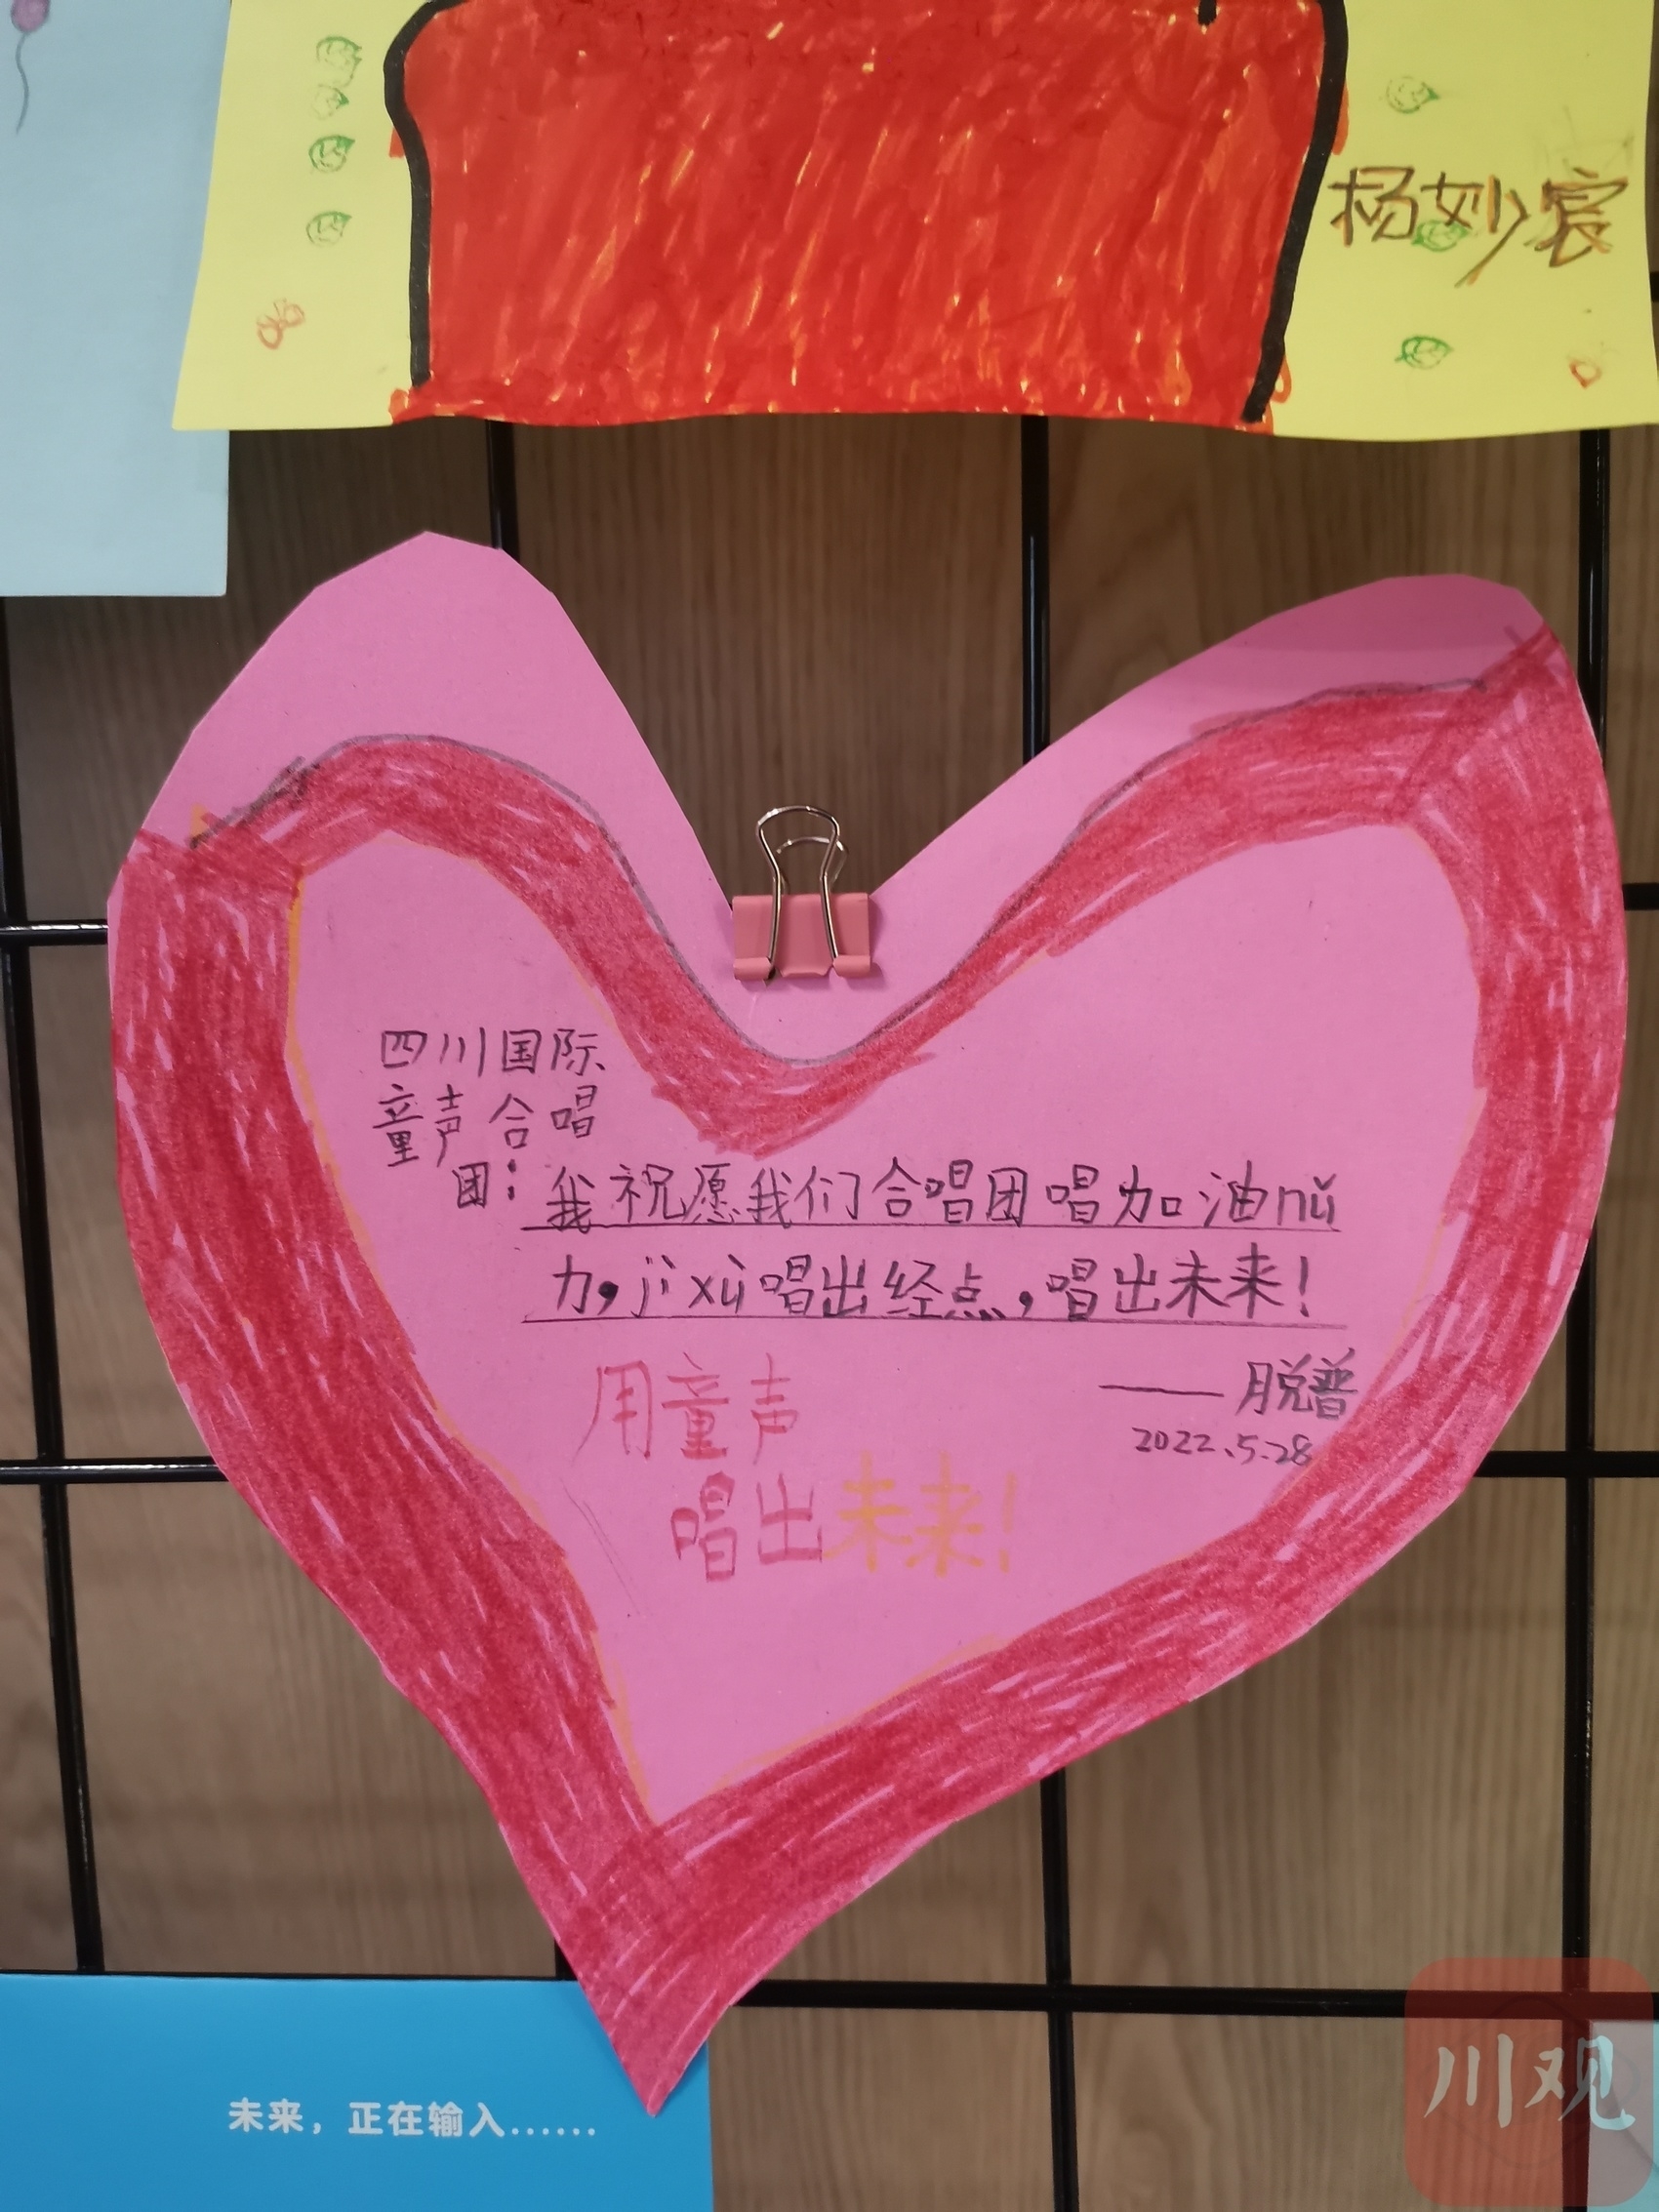 杨妙宸
四川国际
童声合唱
团：我祝愿我们合唱团唱加油nǔ
力，jì xù唱出经点，唱出未来！
——脱普
2022.5.28
用童声
唱出未来！
未来，正在输入……
川观